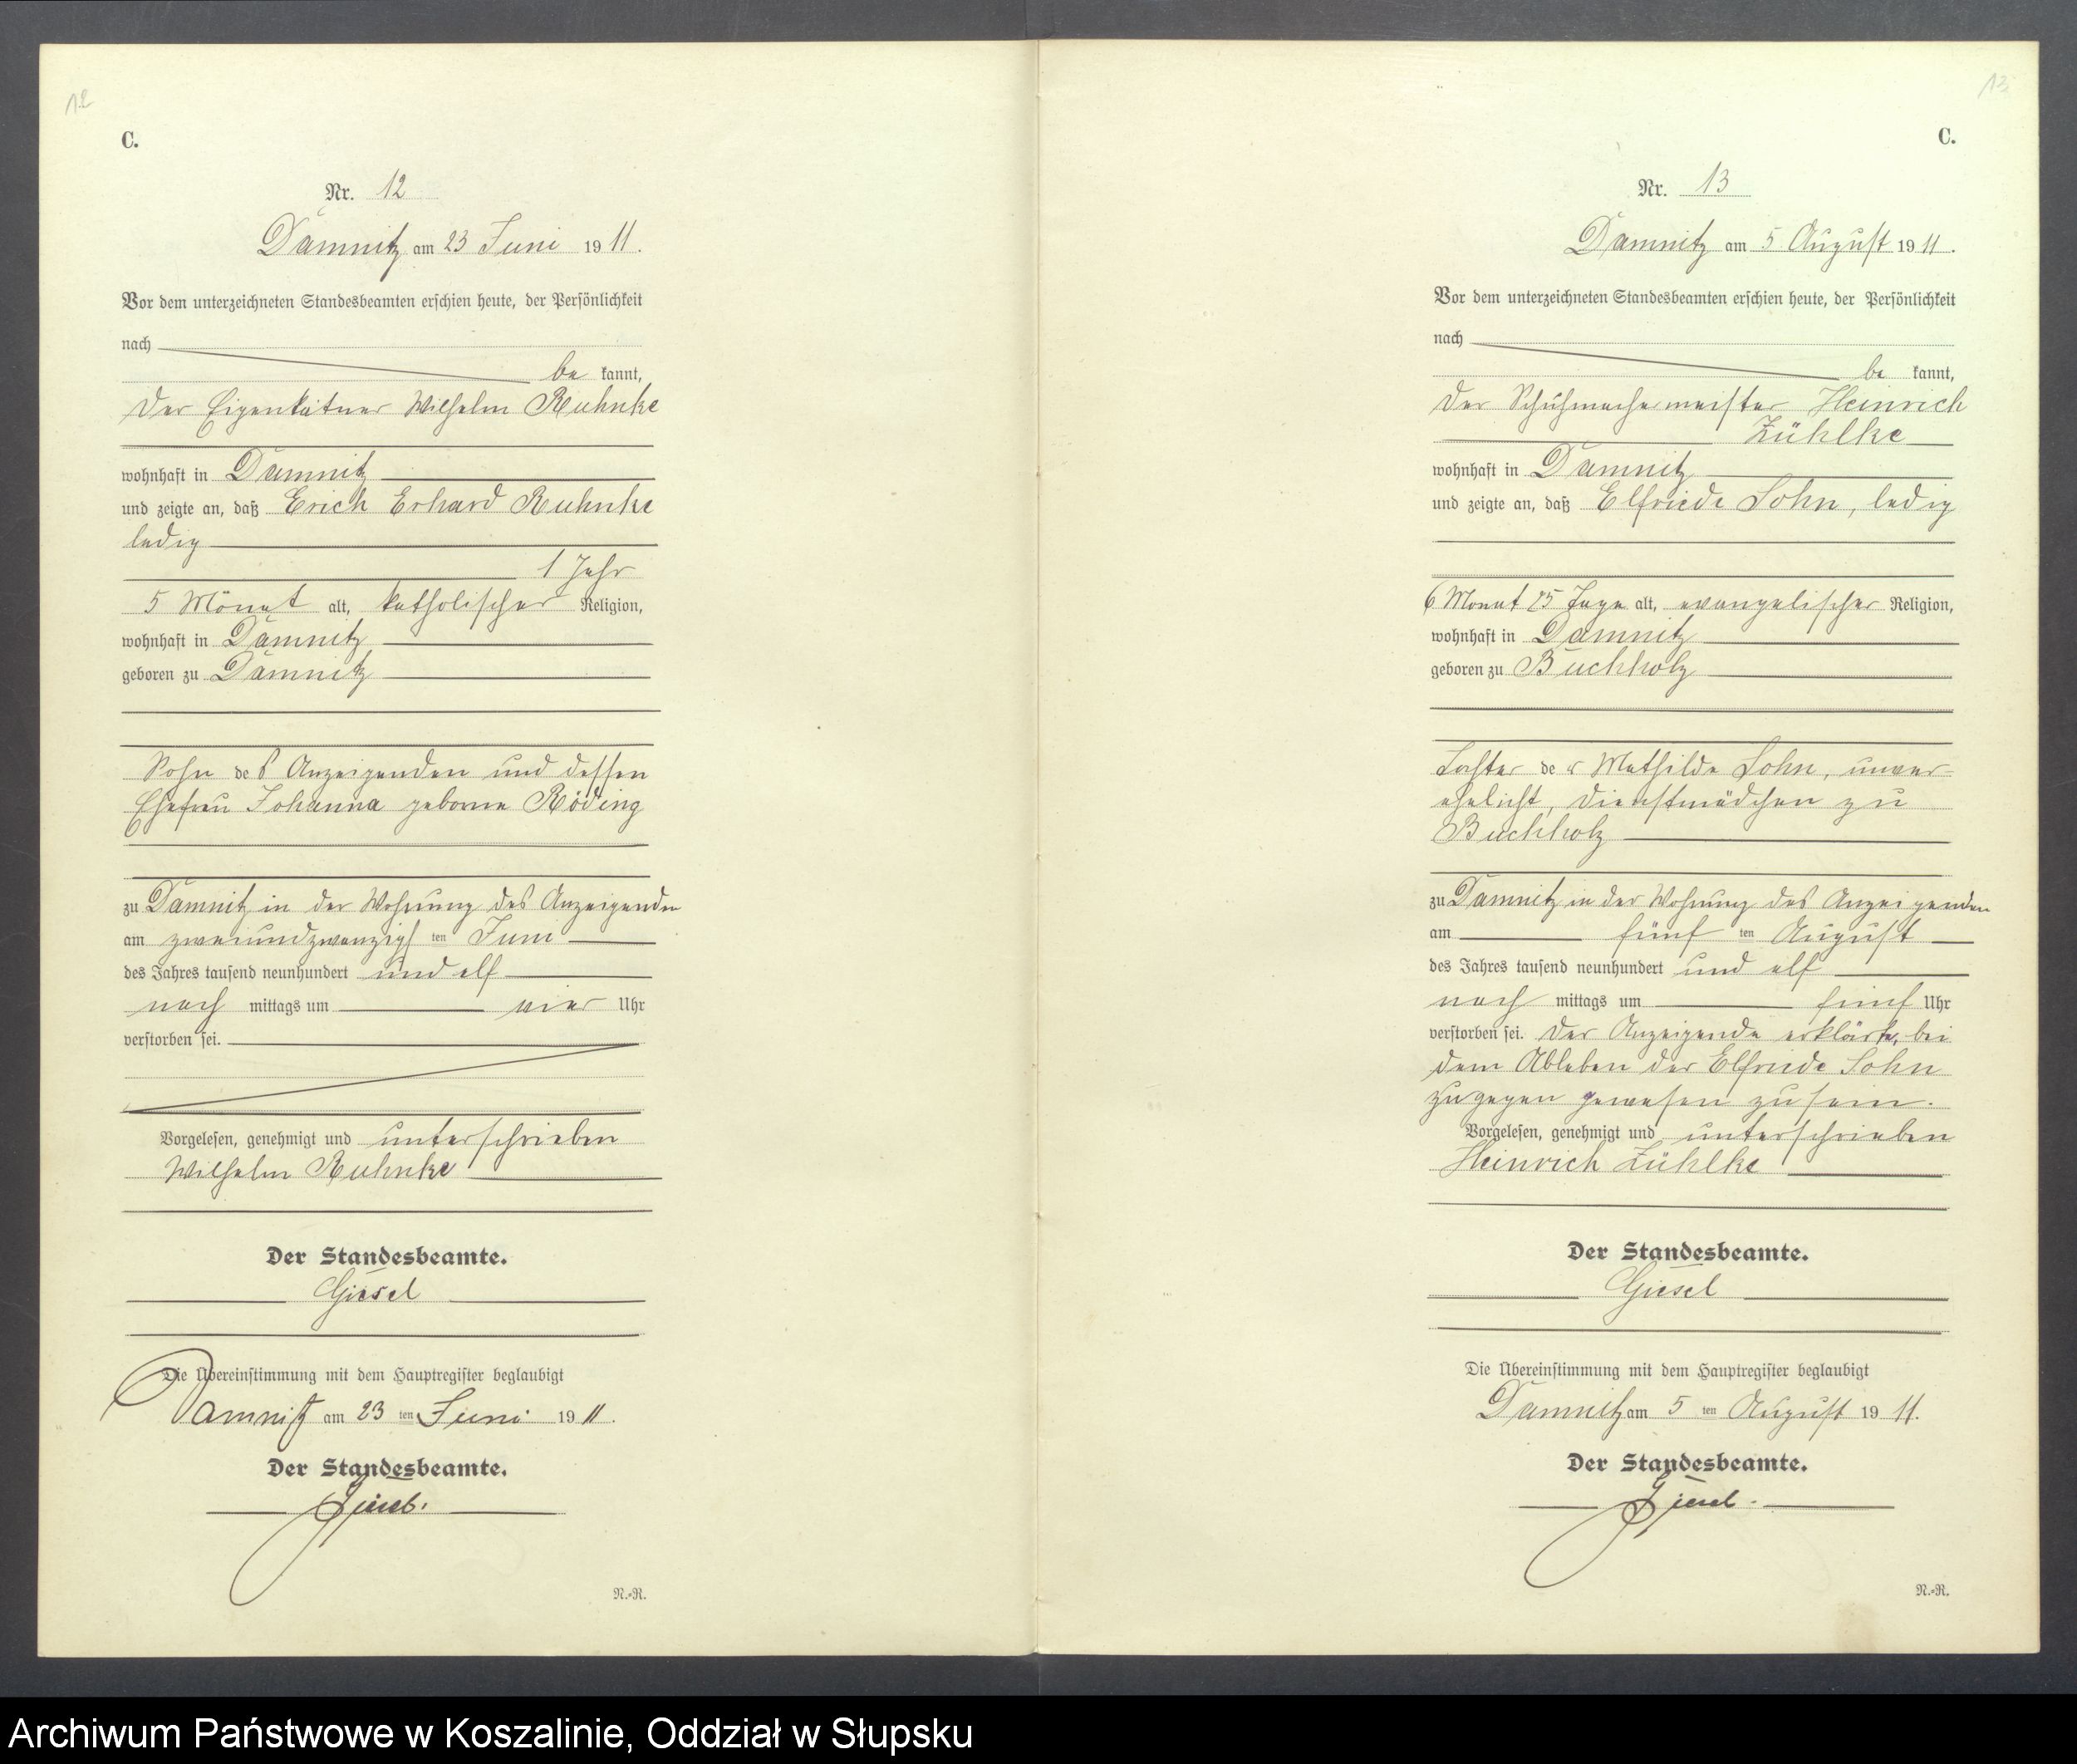 12
C.
Nr. 12
Damnitz am 23 Juni 1911.
Vor dem unterzeichneten Standesbeamten erschien heute, der Persönlichkeit
nach
be kannt,
der Eigenkätner Wilhelm Ruhnke
wohnhaft in Damnitz
und zeigte an, daß Erich Erhard Ruhnke
ledig
1 Jahr
5 Monat alt, katholischer Religion,
wohnhaft in Damnitz
geboren zu Damnitz
Sohn des Anzeigenden und dessen
Ehefrau Johanna geborne Röding
zu Damnitz in der Wohnung des Anzeigenden
am zweiundzwanzigsten Juni
des Jahres tausend neunhundert und elf
nach mittags um vier Uhr
verstorben sei.
Vorgelesen, genehmigt und unterschrieben
Wilhelm Ruhnke
Der Standesbeamte.
Giesel
Die Übereinstimmung mit dem Hauptregister beglaubigt
Damnitz am 23 ten Juni 1911.
Der Standesbeamte.
Giesel.
N.-R.
13
C.
Nr. 13
Damnitz am 5 August 1911.
Vor dem unterzeichneten Standesbeamten erschien heute, der Persönlichkeit
nach
be kannt,
der Schuhmachermeister Heinrich
Zühlke
wohnhaft in Damnitz
und zeigte an, daß Elfriede Sohn, ledig
6 Monat 25 Tage alt, evangelischer Religion,
wohnhaft in Damnitz
geboren zu Buchholz
Tochter der Mathilde Sohn, unver-
ehelicht, Dienstmädchen zu
Buchholz
zu Damnitz in der Wohnung des Anzeigenden
am fünf ten August
des Jahres tausend neunhundert und elf
nach mittags um fünf Uhr
verstorben sei. Der Anzeigende erklärte, bei
dem Ableben der Elfriede Sohn
zugegen gewesen zu sein.
Vorgelesen, genehmigt und unterschrieben
Heinrich Zühlke
Der Standesbeamte.
Giesel
Die Übereinstimmung mit dem Hauptregister beglaubigt
Damnitz am 5 ten August 1911.
Der Standesbeamte.
Giesel.
N.-R.
Archiwum Państwowe w Koszalinie, Oddział w Słupsku